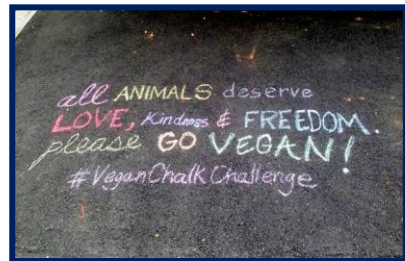 all ANIMALS deserve
LOVE, Kindness & FREEDOM.
please GO VEGAN!
#VeganChalkChallenge